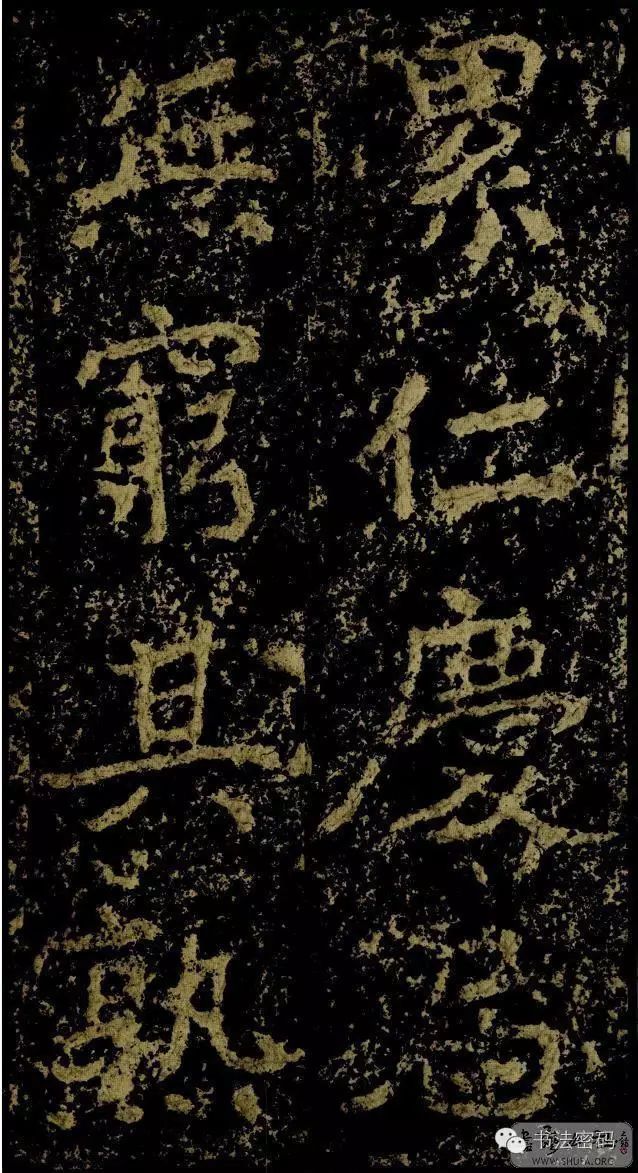 累仁慶尚
無窮其熟
书法密码
WWW.SHUFA.ORG